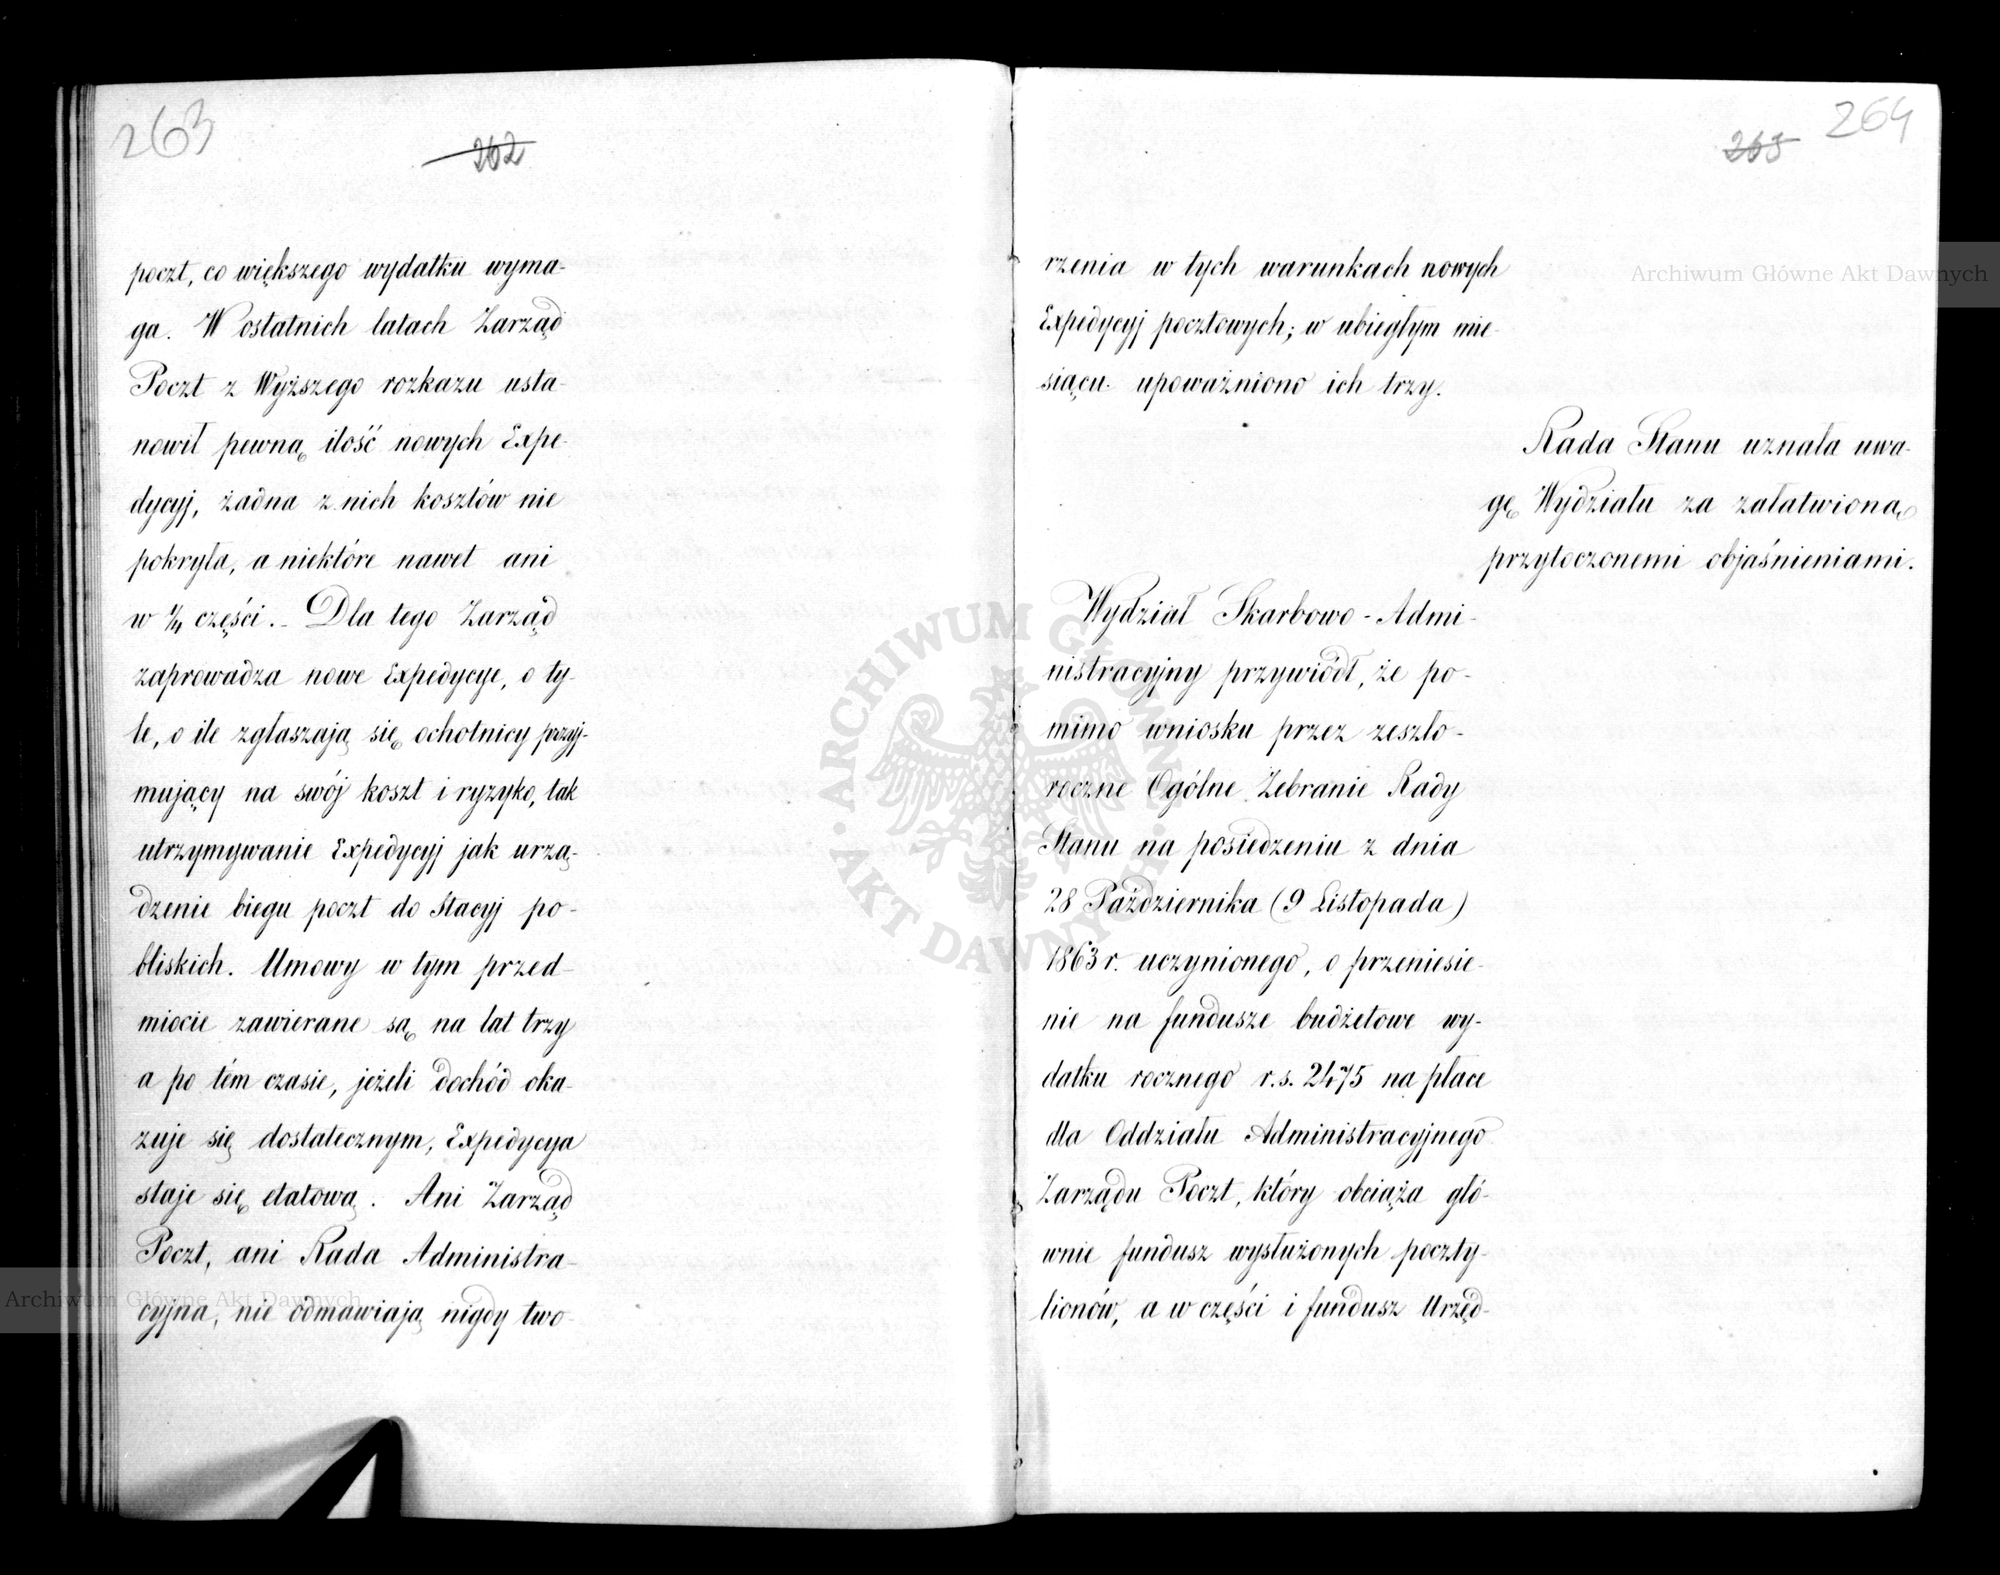 263
262
poczt, co większego wydatku wyma-
ga. W ostatnich latach Zarząd
Poczt z Wyższego rozkazu usta-
nowił pewną ilość nowych Expe-
dycyj, żadna z nich kosztów nie
pokryła, a niektóre nawet ani
w 1/4 części. – Dla tego Zarząd
zaprowadza nowe Expedycye, o ty-
le, o ile zgłaszają się ochotnicy przyj-
mujący na swój koszt i ryzyko, tak
utrzymywanie Expedycyj jak urzą-
dzenie biegu poczt do Stacyj po-
bliskich. Umowy w tym przed-
miocie zawierane są na lat trzy
a po tém czasie, jeżeli dochód oka-
zuje się dostatecznym, Expedycya
staje się etatową. Ani Zarząd
Poczt, ani Rada Administra-
cyjna, nie odmawiają nigdy two-
Archiwum Główne Akt Dawnych
264
263
rzenia w tych warunkach nowych
Expedycyj pocztowych; w ubiegłym mie-
siącu upoważniono ich trzy.
Rada Stanu uznała uwa-
gę Wydziału za załatwioną
przytoczonemi objaśnieniami.
Wydział Skarbowo-Admi-
nistracyjny przywiódł, że po-
mimo wniosku przez zeszło-
roczne Ogólne Zebranie Rady
Stanu na posiedzeniu z dnia
28 Października (9 Listopada)
1863 r. uczynionego, o przeniesie-
nie na fundusze budżetowe wy-
datku rocznego r.s. 2475 na płace
dla Oddziału Administracyjnego
Zarządu Poczt, który obciąża głó-
wnie fundusz wysłużonych poczty-
lionów, a w części i fundusz Urzęd-
Archiwum Główne Akt Dawnych
ARCHIWUM GŁÓWNE
AKT DAWNYCH